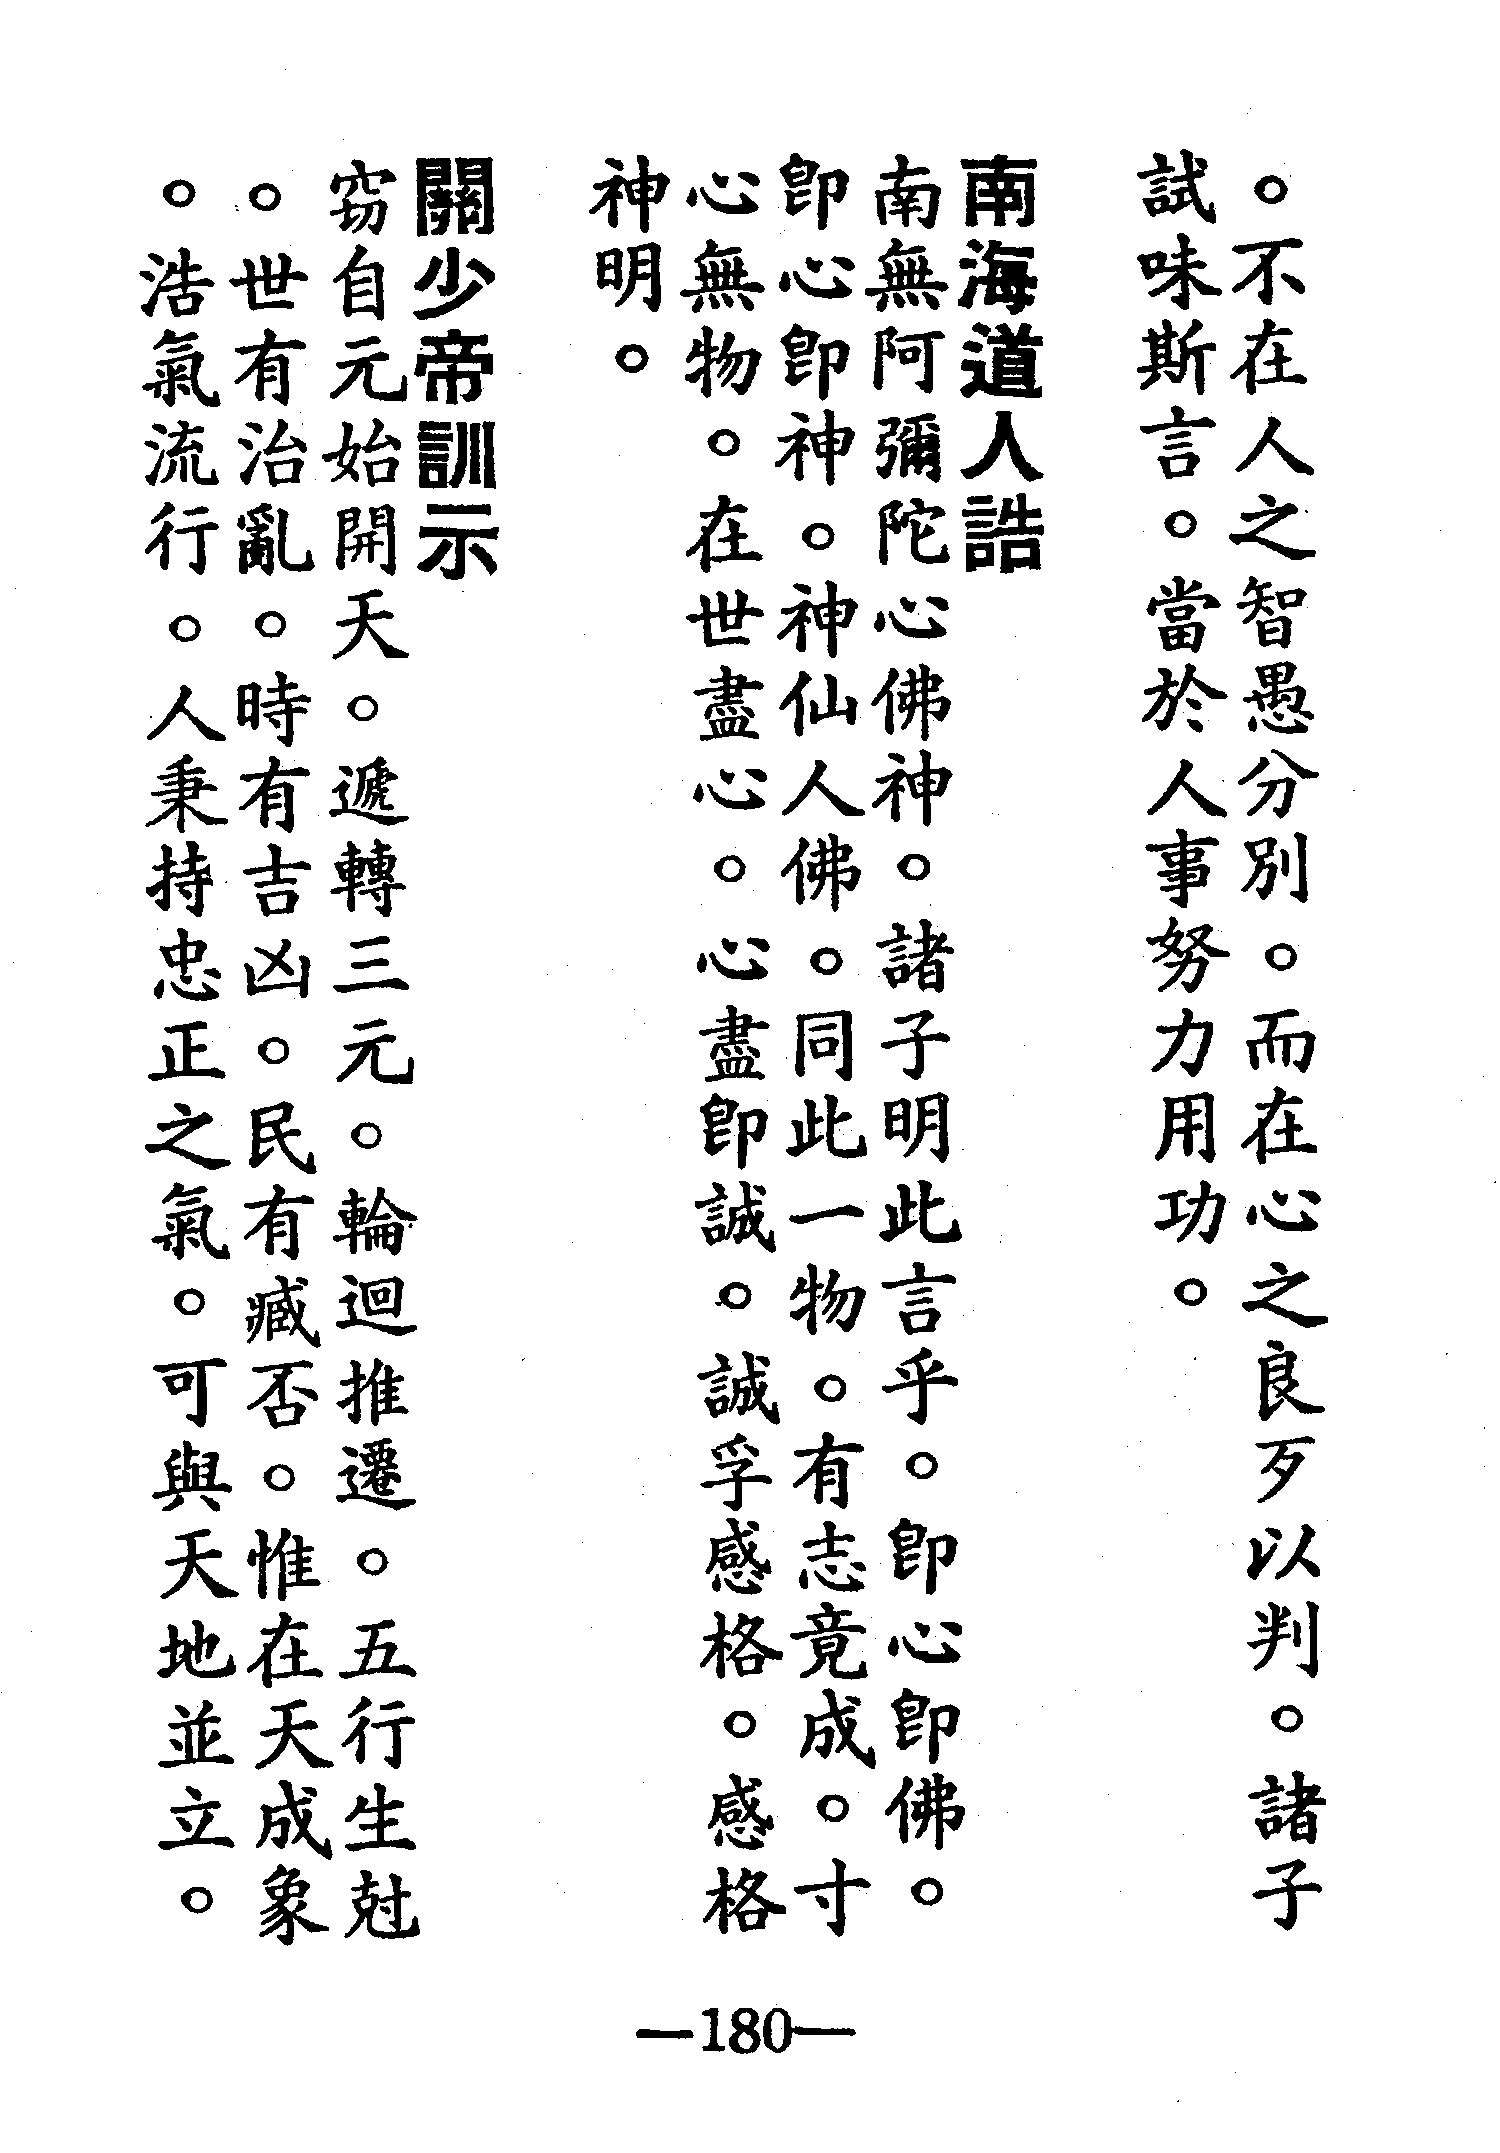 。不在人之智愚分別。而在心之良歹以判。諸子
試味斯言。當於人事努力用功。
南海道人誥
南無阿彌陀心佛神。諸子明此言乎。卽心卽佛。
卽心卽神。神仙人佛。同此一物。有志竟成。寸
心無物。在世盡心。心盡卽誠。誠孚感格。感格
神明。
關少帝訓示
窃自元始開天。遞轉三元。輪迴推遷。五行生尅
。世有治亂。時有吉凶。民有臧否。惟在天成象
。浩氣流行。人秉持忠正之氣。可與天地並立。
—180—